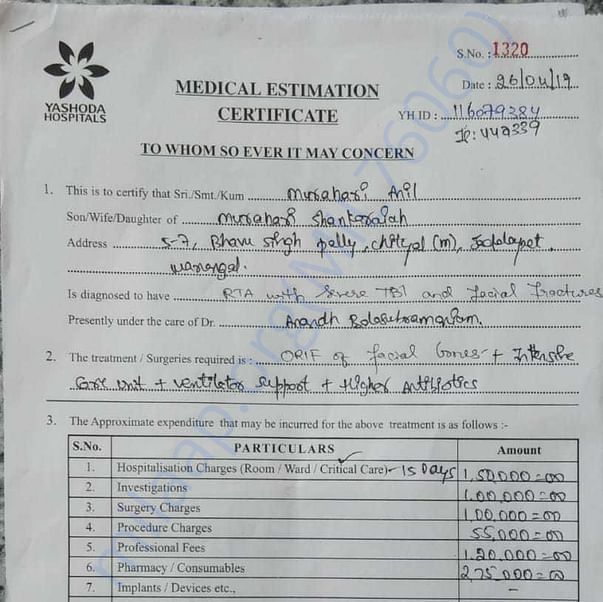 S.No. : 1320
YASHODA
HOSPITALS
MEDICAL ESTIMATION
CERTIFICATE
Date : 26/04/19
YH ID : 116079384
IP: 442339
TO WHOM SO EVER IT MAY CONCERN
1. This is to certify that Sri./Smt./Kum Murahari Anil
Son/Wife/Daughter of Murahari Shankaraiah
Address 5-7, Bhavu Singh pally, chityal (m),
Warangal.
Is diagnosed to have RTA with Severe TBI and Facial Fractures
Presently under the care of Dr. Anandh Balasubramaniam.
2. The treatment / Surgeries required is : ORIF of facial bones + Intensive
Care unit + ventilator support + Higher Antibiotics
3. The Approximate expenditure that may be incurred for the above treatment is as follows :-
S.No. PARTICULARS Amount
1. Hospitalisation Charges (Room / Ward / Critical Care) - 15 Days 1,50,000=00
2. Investigations 1,00,000=00
3. Surgery Charges 1,00,000=00
4. Procedure Charges 55,000=00
5. Professional Fees 1,20,000=00
6. Pharmacy / Consumables 2,75,000=00
7. Implants / Devices etc., -